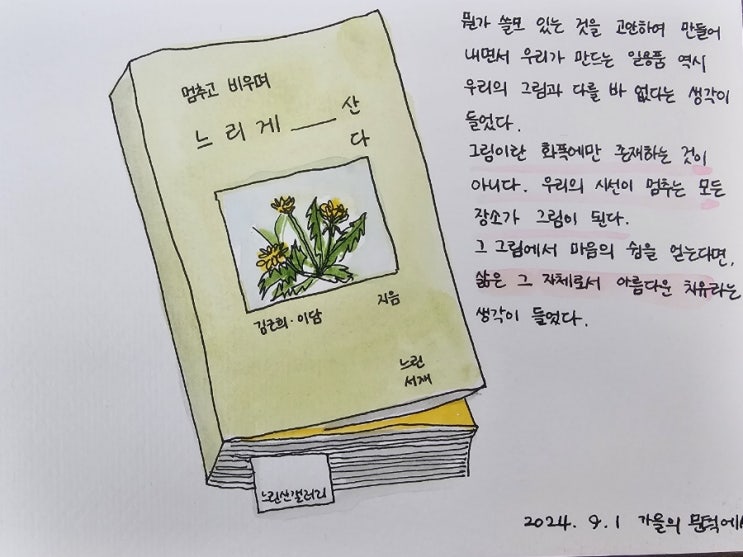 멈추고 비우며
느리게 ___ 산
다
김근희·이담 지음
느린
서재
느린산갤러리
뭔가 쓸모 있는 것을 고안하여 만들어
내면서 우리가 만드는 일용품 역시
우리의 그림과 다를 바 없다는 생각이
들었다.
그림이란 화폭에만 존재하는 것이
아니다. 우리의 시선이 멈추는 모든
장소가 그림이 된다.
그 그림에서 마음의 쉼을 얻는다면,
삶은 그 자체로서 아름다운 치유라는
생각이 들었다.
2024. 9. 1 가을의 문턱에서